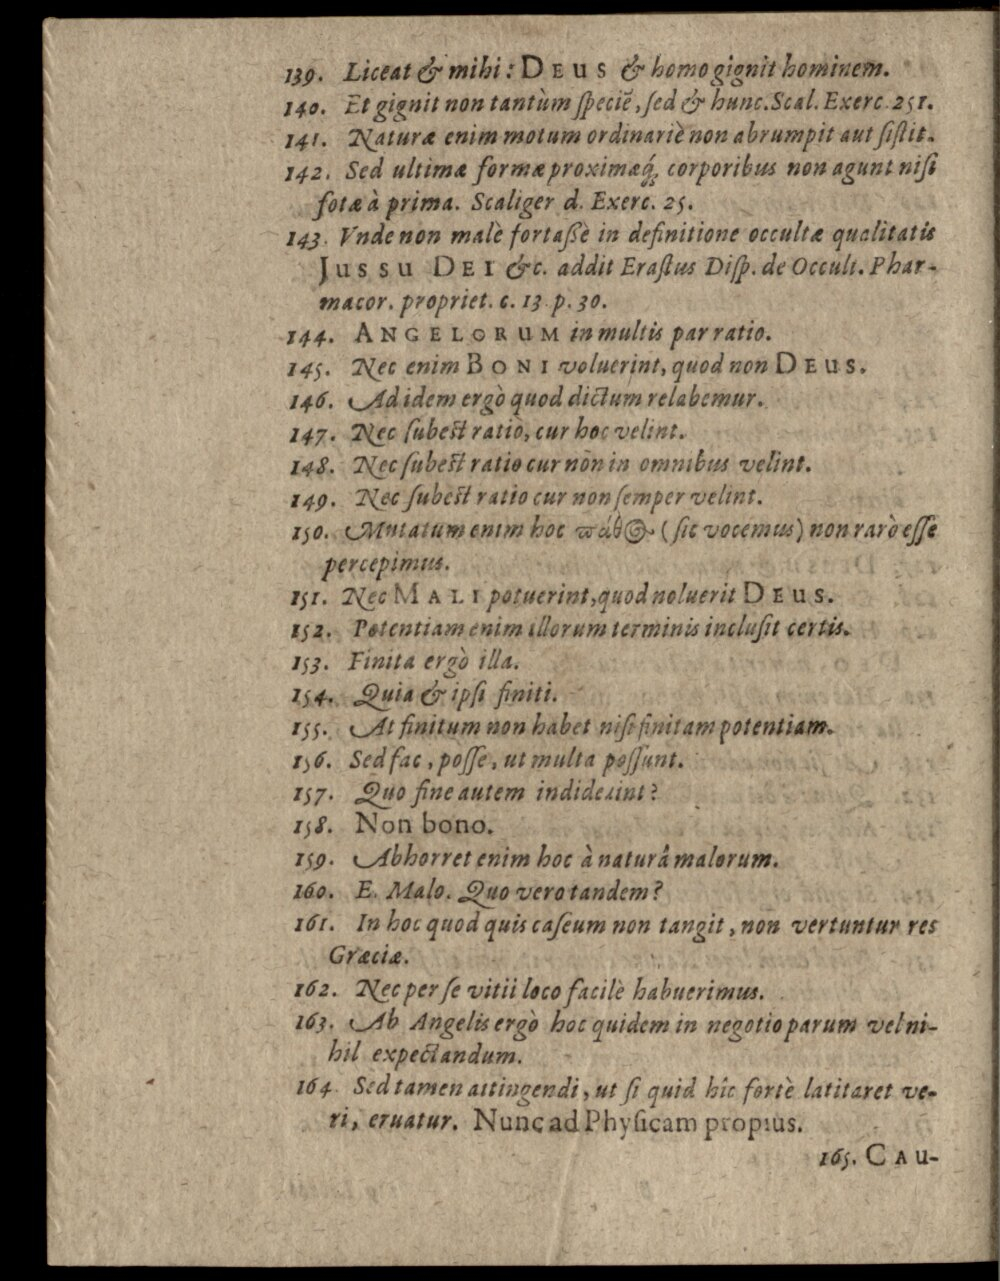 139. Liceat & mihi: DEUS & homo gignit hominem.
140. Et gignit non tantùm speciē, sed & hunc. Scal. Exerc. 251.
141. Naturæ enim motum ordinariè non abrumpit aut sistit.
142. Sed ultimæ formæ proximæq́; corporibus non agunt nisi
fotæ à prima. Scaliger d. Exerc. 25.
143. Vnde non malè fortaßè in definitione occultæ qualitatis
JUSSU DEI &c. addit Erastus Disp. de Occult. Phar-
macor. propriet. c. 13 p. 30.
144. ANGELORUM in multis par ratio.
145. Nec enim BONI voluerint, quod non DEUS.
146. Ad idem ergò quod dictum relabemur.
147. Nec subest ratio, cur hoc velint.
148. Nec subest ratio cur non in omnibus velint.
149. Nec subest ratio cur non semper velint.
150. Mutatum enim hoc ϖάθος (sic vocemus) non rarò esse
percepimus.
151. Nec MALI potuerint, quod noluerit DEUS.
152. Potentiam enim illorum terminis inclusit certis.
153. Finita ergò illa.
154. Quia & ipsi finiti.
155. At finitum non habet nisi finitam potentiam.
156. Sed fac, posse, ut multa possunt.
157. Quo fine autem indiderint?
158. Non bono.
159. Abhorret enim hoc à naturâ malorum.
160. E. Malo. Quo vero tandem?
161. In hoc quod quis caseum non tangit, non vertuntur res
Græciæ.
162. Nec per se vitii loco facilè habuerimus.
163. Ab Angelis ergò hoc quidem in negotio parum vel ni-
hil expectandum.
164. Sed tamen attingendi, ut si quid hîc fortè latitaret ve-
ri, eruatur. Nunc ad Physicam propius.
165. CAU-